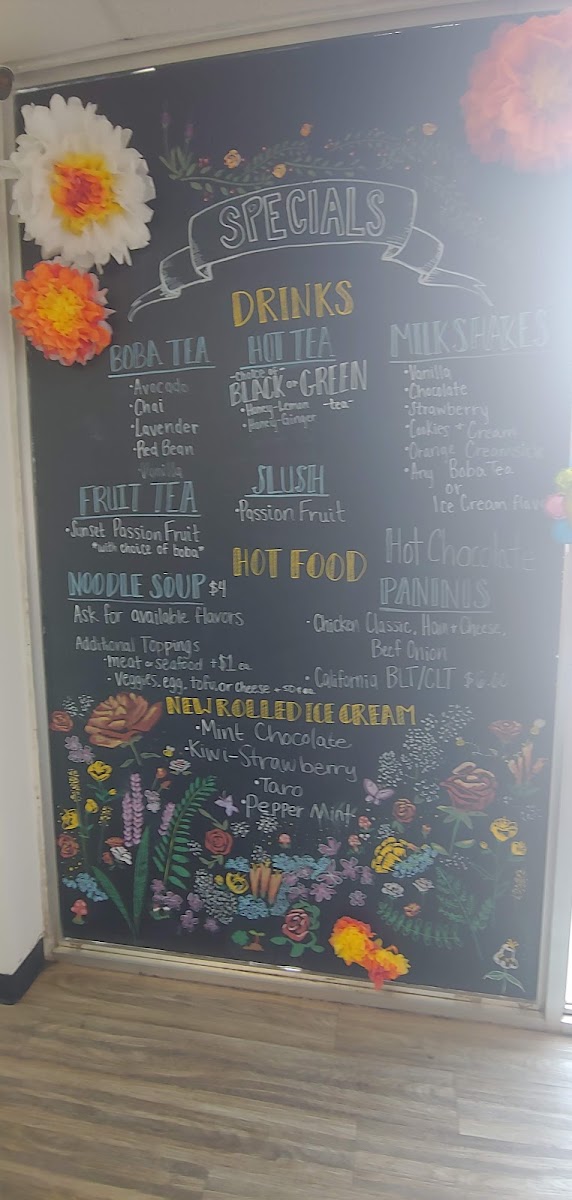 SPECIALS
DRINKS
BOBA TEA
• Avocado
• Chai
• Lavender
• Red Bean
Vanilla
HOT TEA
-choice of-
BLACK or GREEN
-tea-
• Honey-Lemon
• Honey-Ginger
MILKSHAKES
• Vanilla
• Chocolate
• Strawberry
• Cookies + Cream
• Orange Creamsicle
• Any Boba Tea
or
Ice Cream flavor
FRUIT TEA
• Sunset Passion Fruit
*with choice of boba*
SLUSH
• Passion Fruit
Hot Chocolate
HOT FOOD
NOODLE SOUP $4
Ask for available flavors
Additional Toppings
• meat or seafood +$1 ea.
• veggies, egg, tofu, or cheese + 50¢ ea.
PANINIS
• Chicken Classic, Ham + Cheese,
Beef Onion
• California BLT/CLT
NEW ROLLED ICE CREAM
• Mint Chocolate
• Kiwi-Strawberry
• Taro
• Pepper Mint